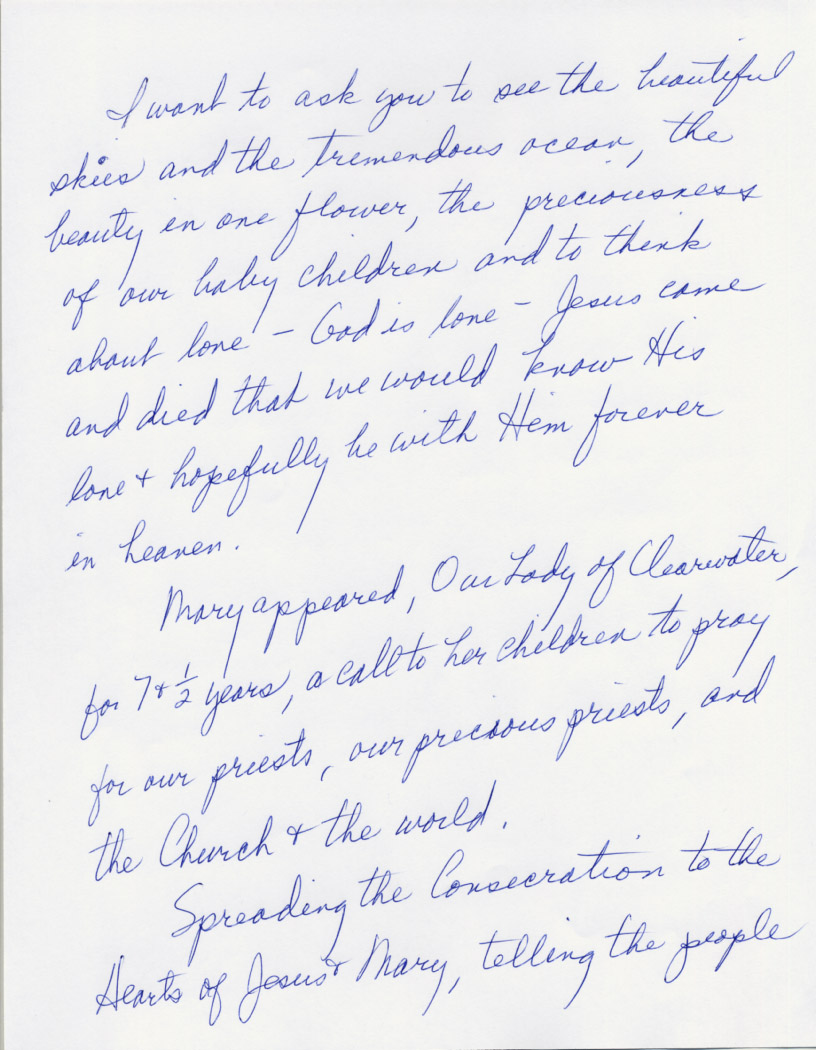 I want to ask you to see the beautiful
skies and the tremendous ocean, the
beauty in one flower, the preciousness
of our baby children and to think
about love - God is love - Jesus came
and died that we would know His
love + hopefully be with Him forever
in heaven.
Mary appeared, Our Lady of Clearwater,
for 7 + 1/2 years, a call to her children to pray
for our priests, our precious priests, and
the Church + the world.
Spreading the Consecration to the
Hearts of Jesus + Mary, telling the people